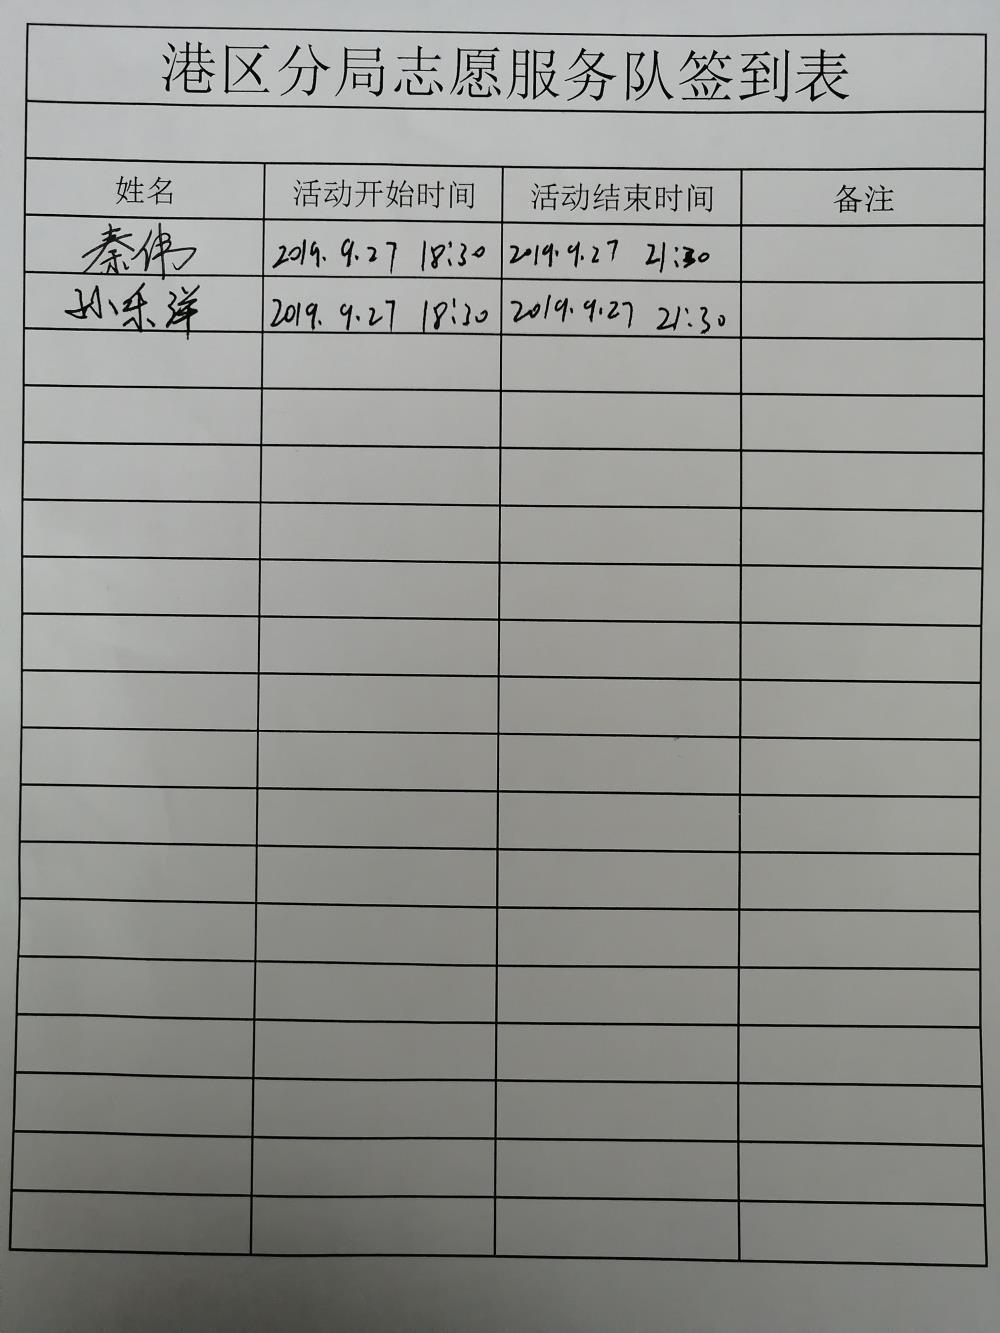 港区分局志愿服务队签到表
姓名 活动开始时间 活动结束时间 备注
秦伟 2019.9.27 18:30 2019.9.27 21:30
孙乐洋 2019.9.27 18:30 2019.9.27 21:30